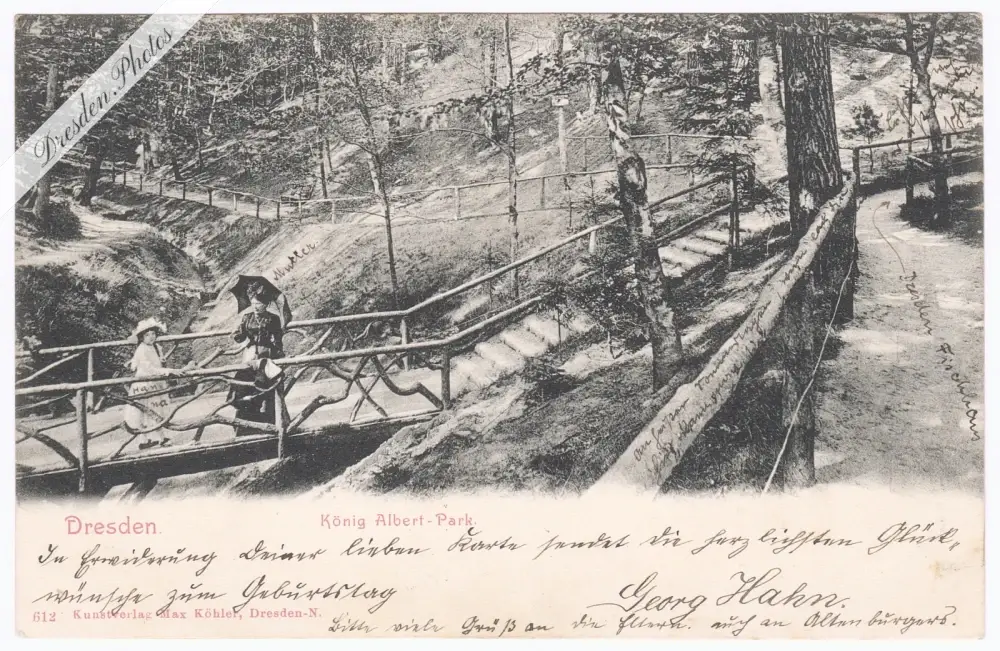 Dresden.Photos
Mutter.
Hanna
Dresden.
König Albert-Park.
In Erwiderung Deiner lieben Karte sendet die herzlichsten Glück-
wünsche zum Geburtstag
Georg Hahn.
612 Kunstverlag Max Köhler, Dresden-N.
Bitte viele Grüß an die Eltern. auch an Altenburgers.